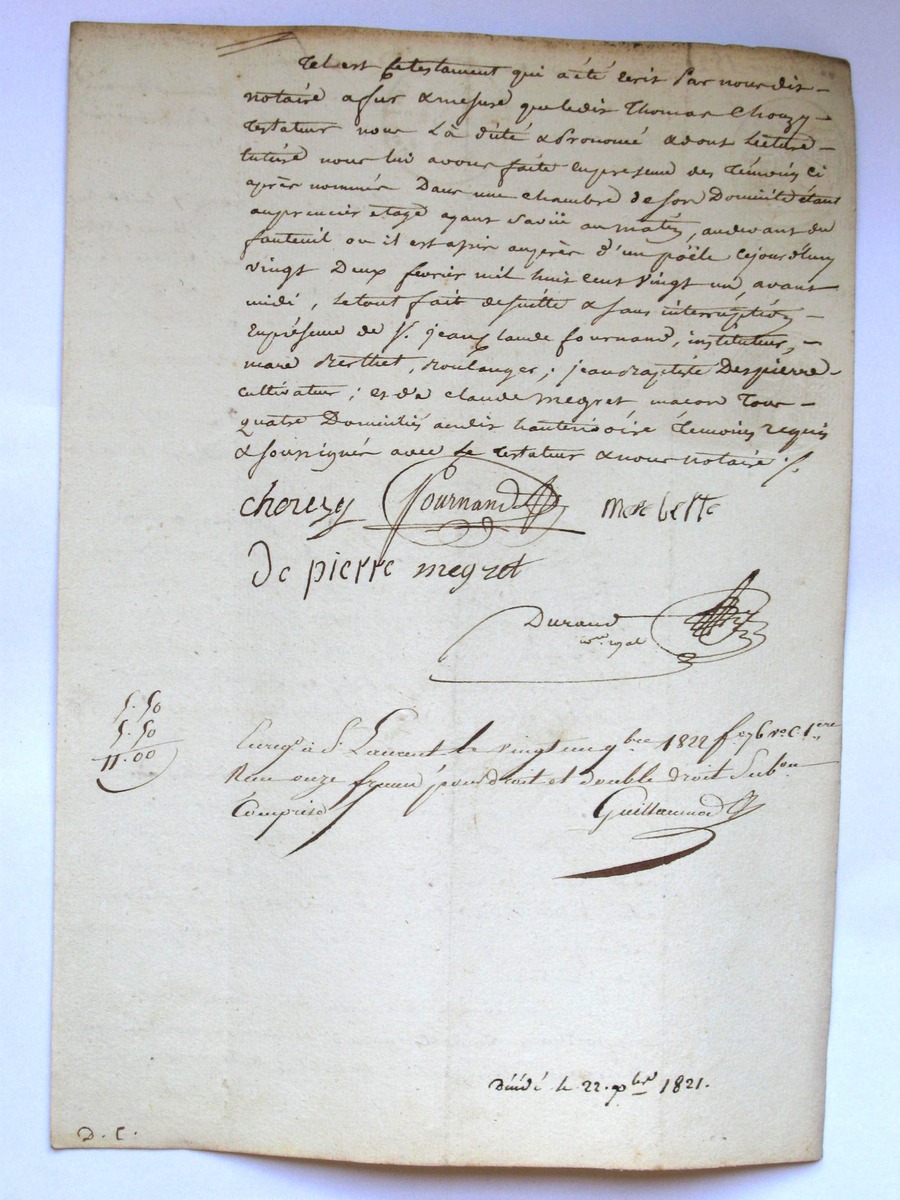 Tel est le testament qui a été ecrit par nous dit
notaire a fur & mesure que ledit Thomas Chouzy
testateur nous la dicté & prononcé & dont lecture
entiere nous lui avons faite en presense des temoins ci
après nommés dans une chambre de son Domicile étant
au premier etage ayant vüe au matin, audevant du
fauteuil ou il est assis auprès d'un poële cejourd'huy
vingt Deux fevrier mil huit cent vingt un, avant
midi, le tout fait de suitte & sans interruption
en présense de S. jean claude fournand, instituteur,
marc Berthet, Boulanger; jean Baptiste Despierre
cultivateur; et de claude megret macon Tous
quatre Domiciliés audit temoins requis
& soussignés avec le testateur & nous notaire
chouzy fournand
De pierre megret
Durand
5.50
5.50
11.00
Enreg. à St Laurent le vingt un 9bre 1822 f. 76 Vo C. 1ere
Reçu onze francs pour droit et double droit Subon
Comprise Guillaumod
le 22. 1821.
D. C.